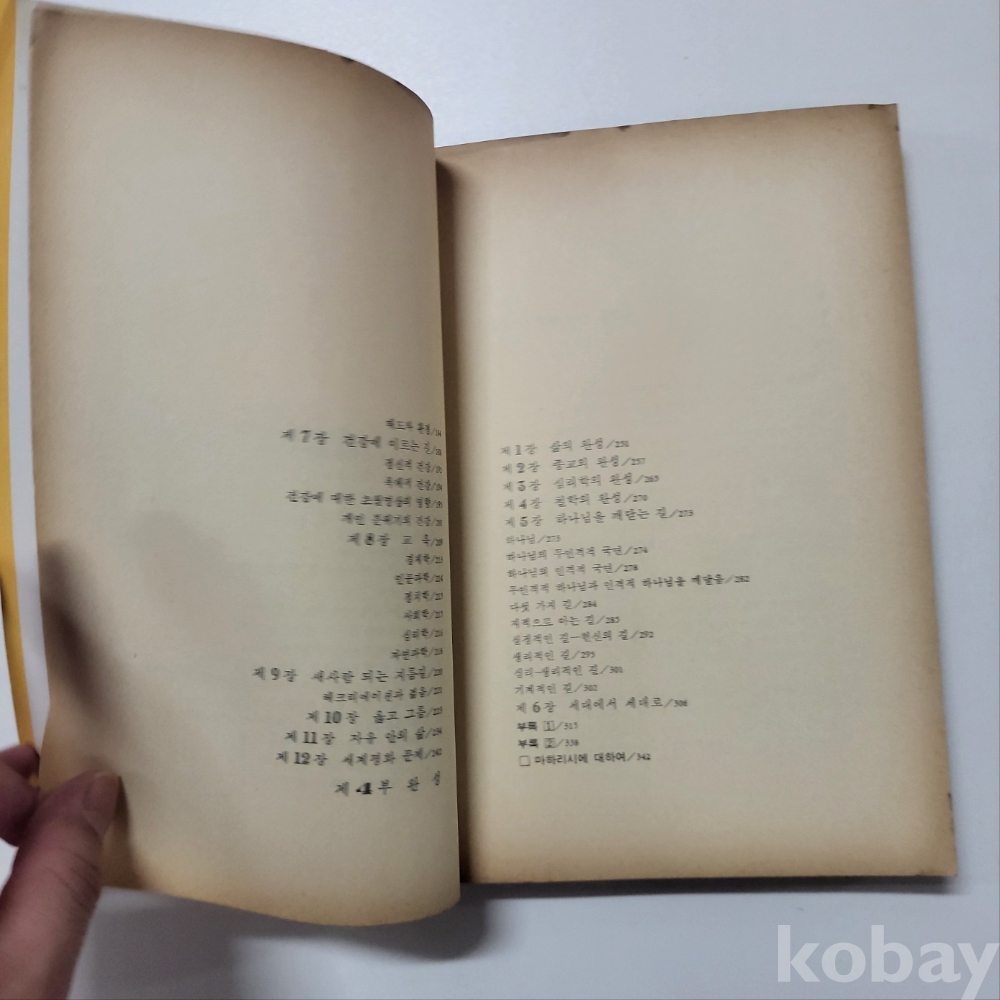 태도와 환경
제 7 장 건강에 이르는 길
정신적 건강
육체적 건강
건강에 대한 초월명상의 영향
개인 분위기의 건강
제 8 장 교 육
경제학
인문과학
정치학
사회학
심리학
자연과학
제 9 장 새사람 되는 지름길
레크리에이션과 젊음
제 10 장 옳고 그름
제 11 장 자유 안의 삶
제 12 장 세계평화 문제
제 4 부 완 성
제 1 장 삶의 완성/251
제 2 장 종교의 완성/257
제 3 장 심리학의 완성/265
제 4 장 철학의 완성/270
제 5 장 하나님을 깨닫는 길/273
하나님/273
하나님의 무인격적 국면/274
하나님의 인격적 국면/278
무인격적 하나님과 인격적 하나님을 깨달음/282
다섯 가지 길/284
지적으로 아는 길/285
심정적인 길—헌신의 길/292
생리적인 길/295
심리-생리적인 길/301
기계적인 길/302
제 6 장 세대에서 세대로/306
부록 [1]/317
부록 [2]/338
□ 마하리시에 대하여/342
kobay